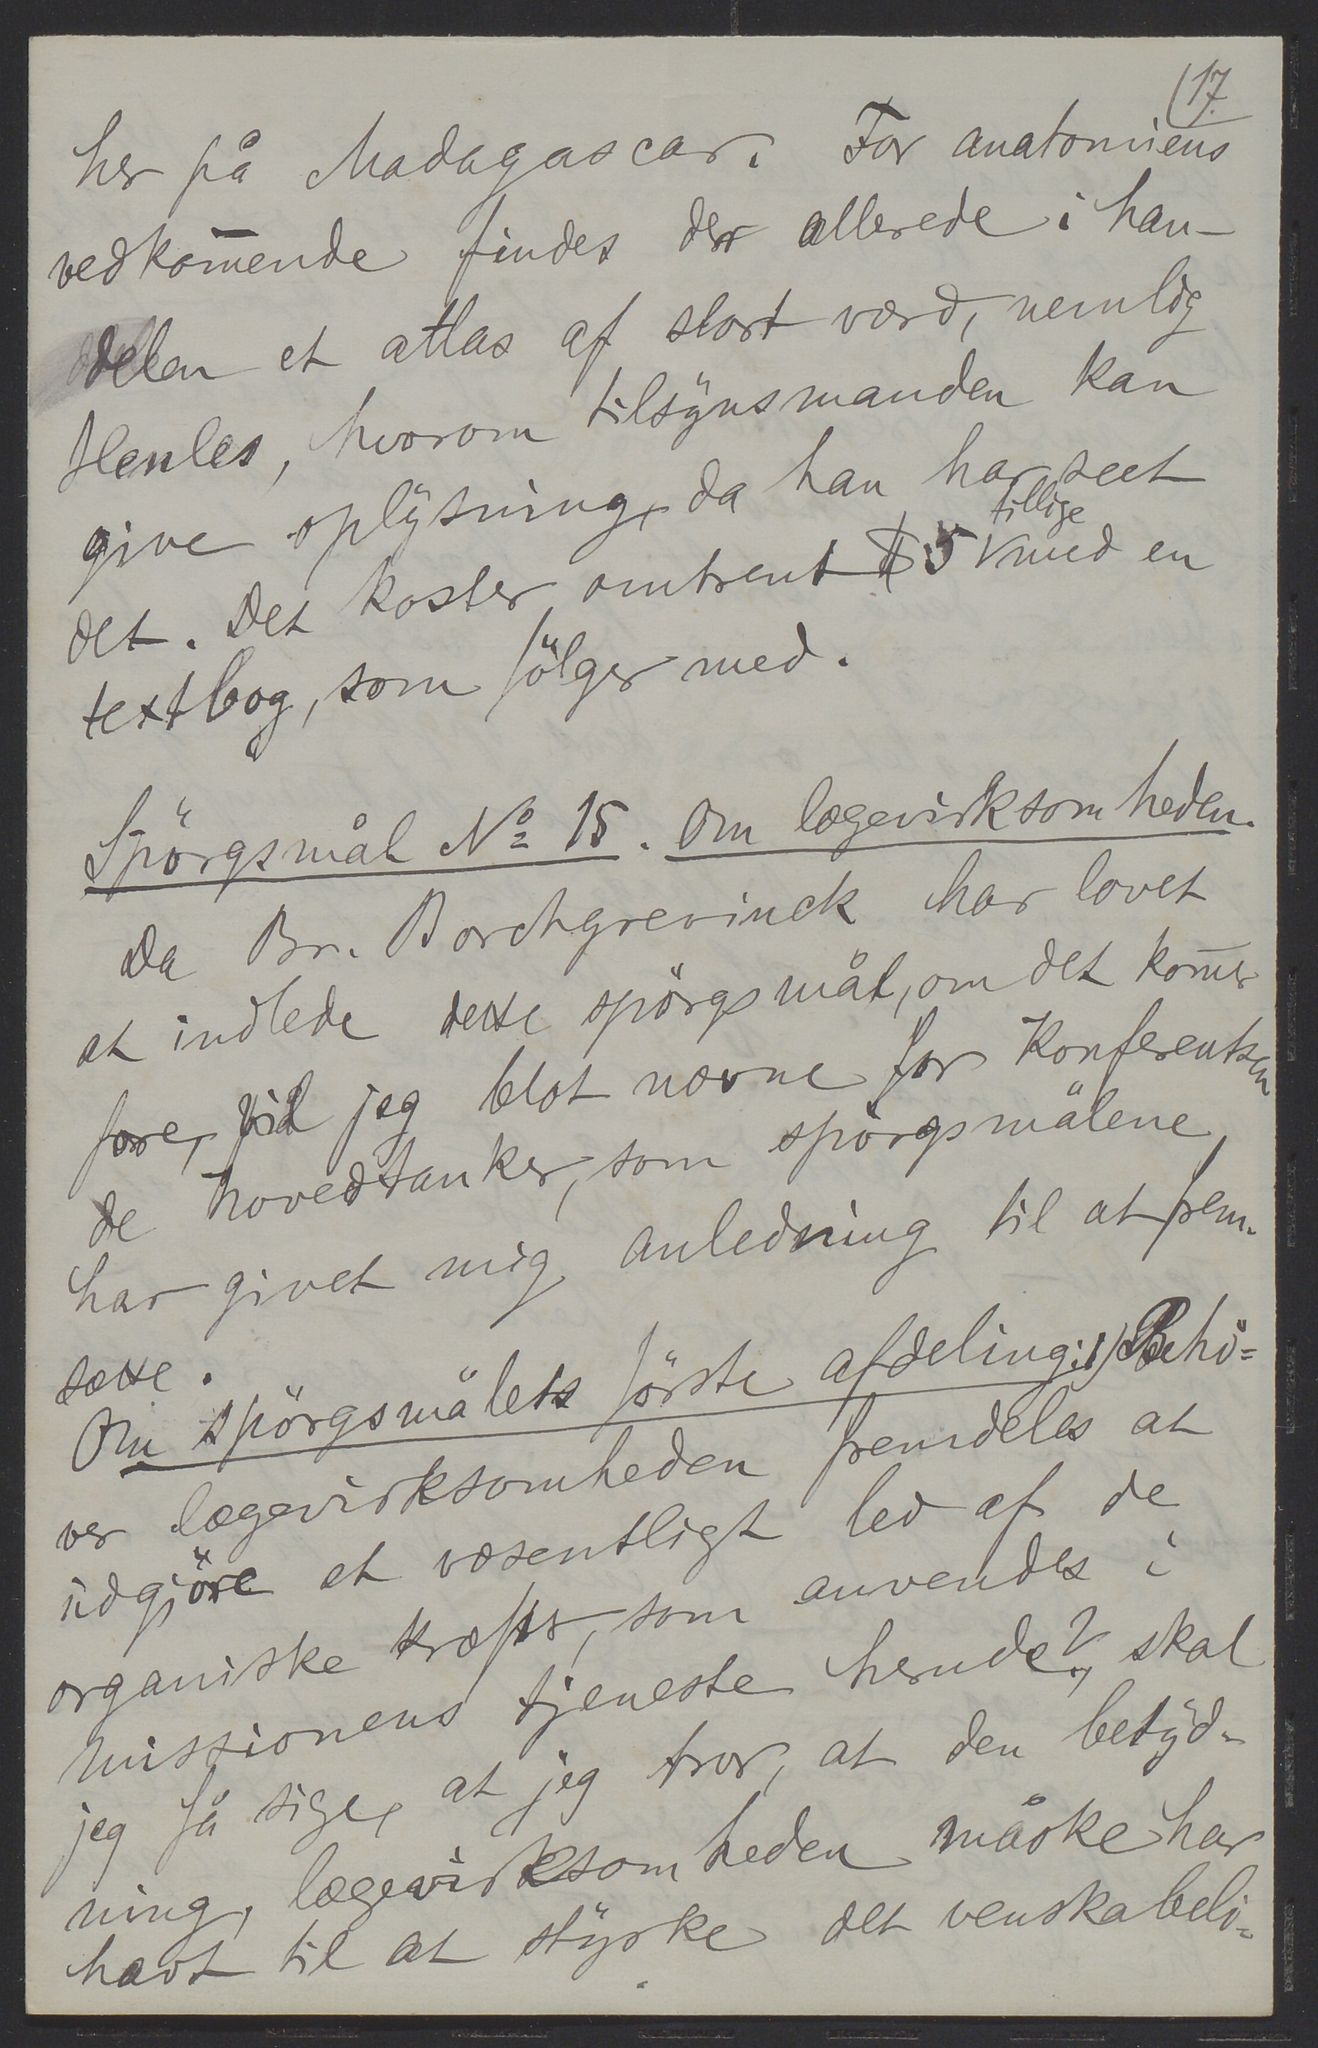 (17.
her på Madagascar. For anatomiens
vedkom̄ende findes der allerede i han-
delen et atlas af stort værd, nemlig
Henles, hvorom tilsÿnsmanden kan
give oplÿsning, da han har seet
det. Det koster omtrent $5 tillige med en
textbog, som fölger med.
Spörgsmål No 15. Om lægevirksomheden.
Da Br. Borchgrevinck har lovet
at indlede dette spörgsmål, om det kom̄er
fore, vil jeg blot nævne for Konferentsen
de hovedtanker, som spörgsmålene
har givet mig anledning til at frem-
sætte.
Om spörgsmålets förste afdeling: 1) Behö=
ver lægevirksomheden fremdeles at
udgjöre et væsentligt led af de
organiske kræfter, som anvendes i
missionens tjeneste herude?, skal
jeg få sige, at jeg tror, at den betÿd-
ning, lægevirksomheden måske har
havt til at stÿrke det venskabeli-